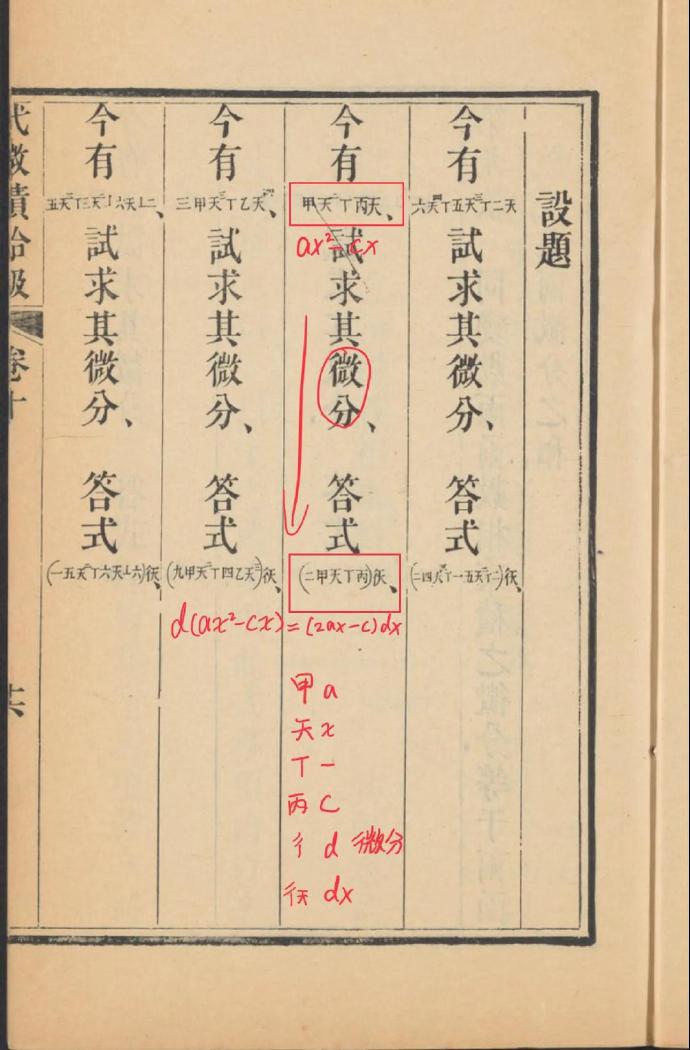 設題
今有 六天四丅五天三丅二天 試求其微分、 答式 (二四天三丅一五天二丅二)彳天、
今有 甲天二丅丙天、 試求其微分、 答式 (二甲天丅丙)彳天、
今有 三甲天三丅乙天四、 試求其微分、 答式 (九甲天二丅四乙天三)彳天、
今有 五天三丅三天二丄六天丄二、 試求其微分、 答式 (一五天二丅六天丄六)彳天、
代微積拾級
卷十
ax²-cx
d(ax²-cx)=(2ax-c)dx
甲 a
天 x
丅 -
丙 c
彳 d 微分
彳天 dx